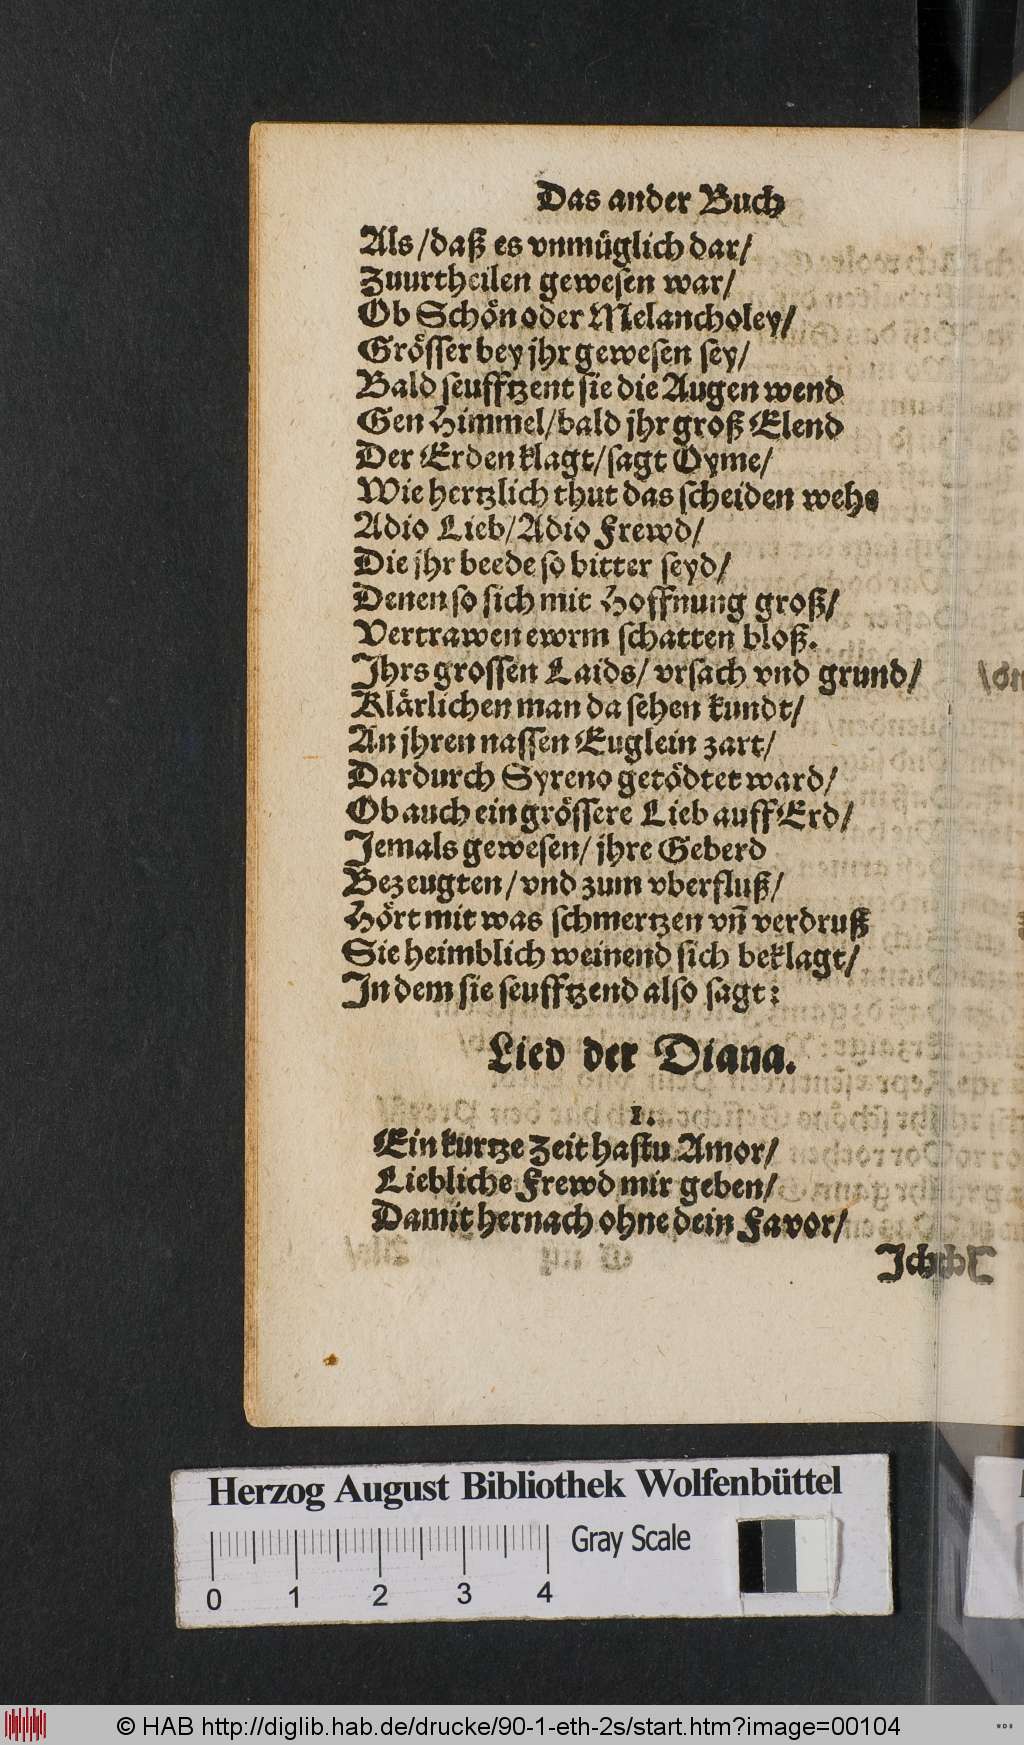 Das ander Buch
Als/daß es vnmüglich dar/
Zuurtheilen gewesen war/
Ob Schön oder Melancholey/
Grösser bey jhr gewesen sey/
Bald seufftzent sie die Augen wend
Gen Himmel/bald jhr groß Elend
Der Erden klagt/sagt Oyme/
Wie hertzlich thut das scheiden wehe
Adio Lieb/Adio Frewd/
Die jhr beede so bitter seyd/
Denen so sich mit Hoffnung groß/
Vertrawen ewrm schatten bloß.
Jhrs grossen Laids/ vrsach vnd grund/
Klärlichen man da sehen kundt/
An jhren nassen Euglein zart/
Dardurch Syreno getödtet ward/
Ob auch ein grössere Lieb auff Erd/
Jemals gewesen/ jhre Geberd
Bezeugten/vnd zum vberfluß/
Hört mit was schmertzen vñ verdruß
Sie heimblich weinend sich beklagt/
In dem sie seufftzend also sagt:
Lied der Diana.
1.
Ein kurtze Zeit hastu Amor/
Liebliche Frewd mir geben/
Damit hernach ohne dein Favor/
Jch
Herzog August Bibliothek Wolfenbüttel
Gray Scale
0 1 2 3 4
© HAB http://diglib.hab.de/drucke/90-1-eth-2s/start.htm?image=00104